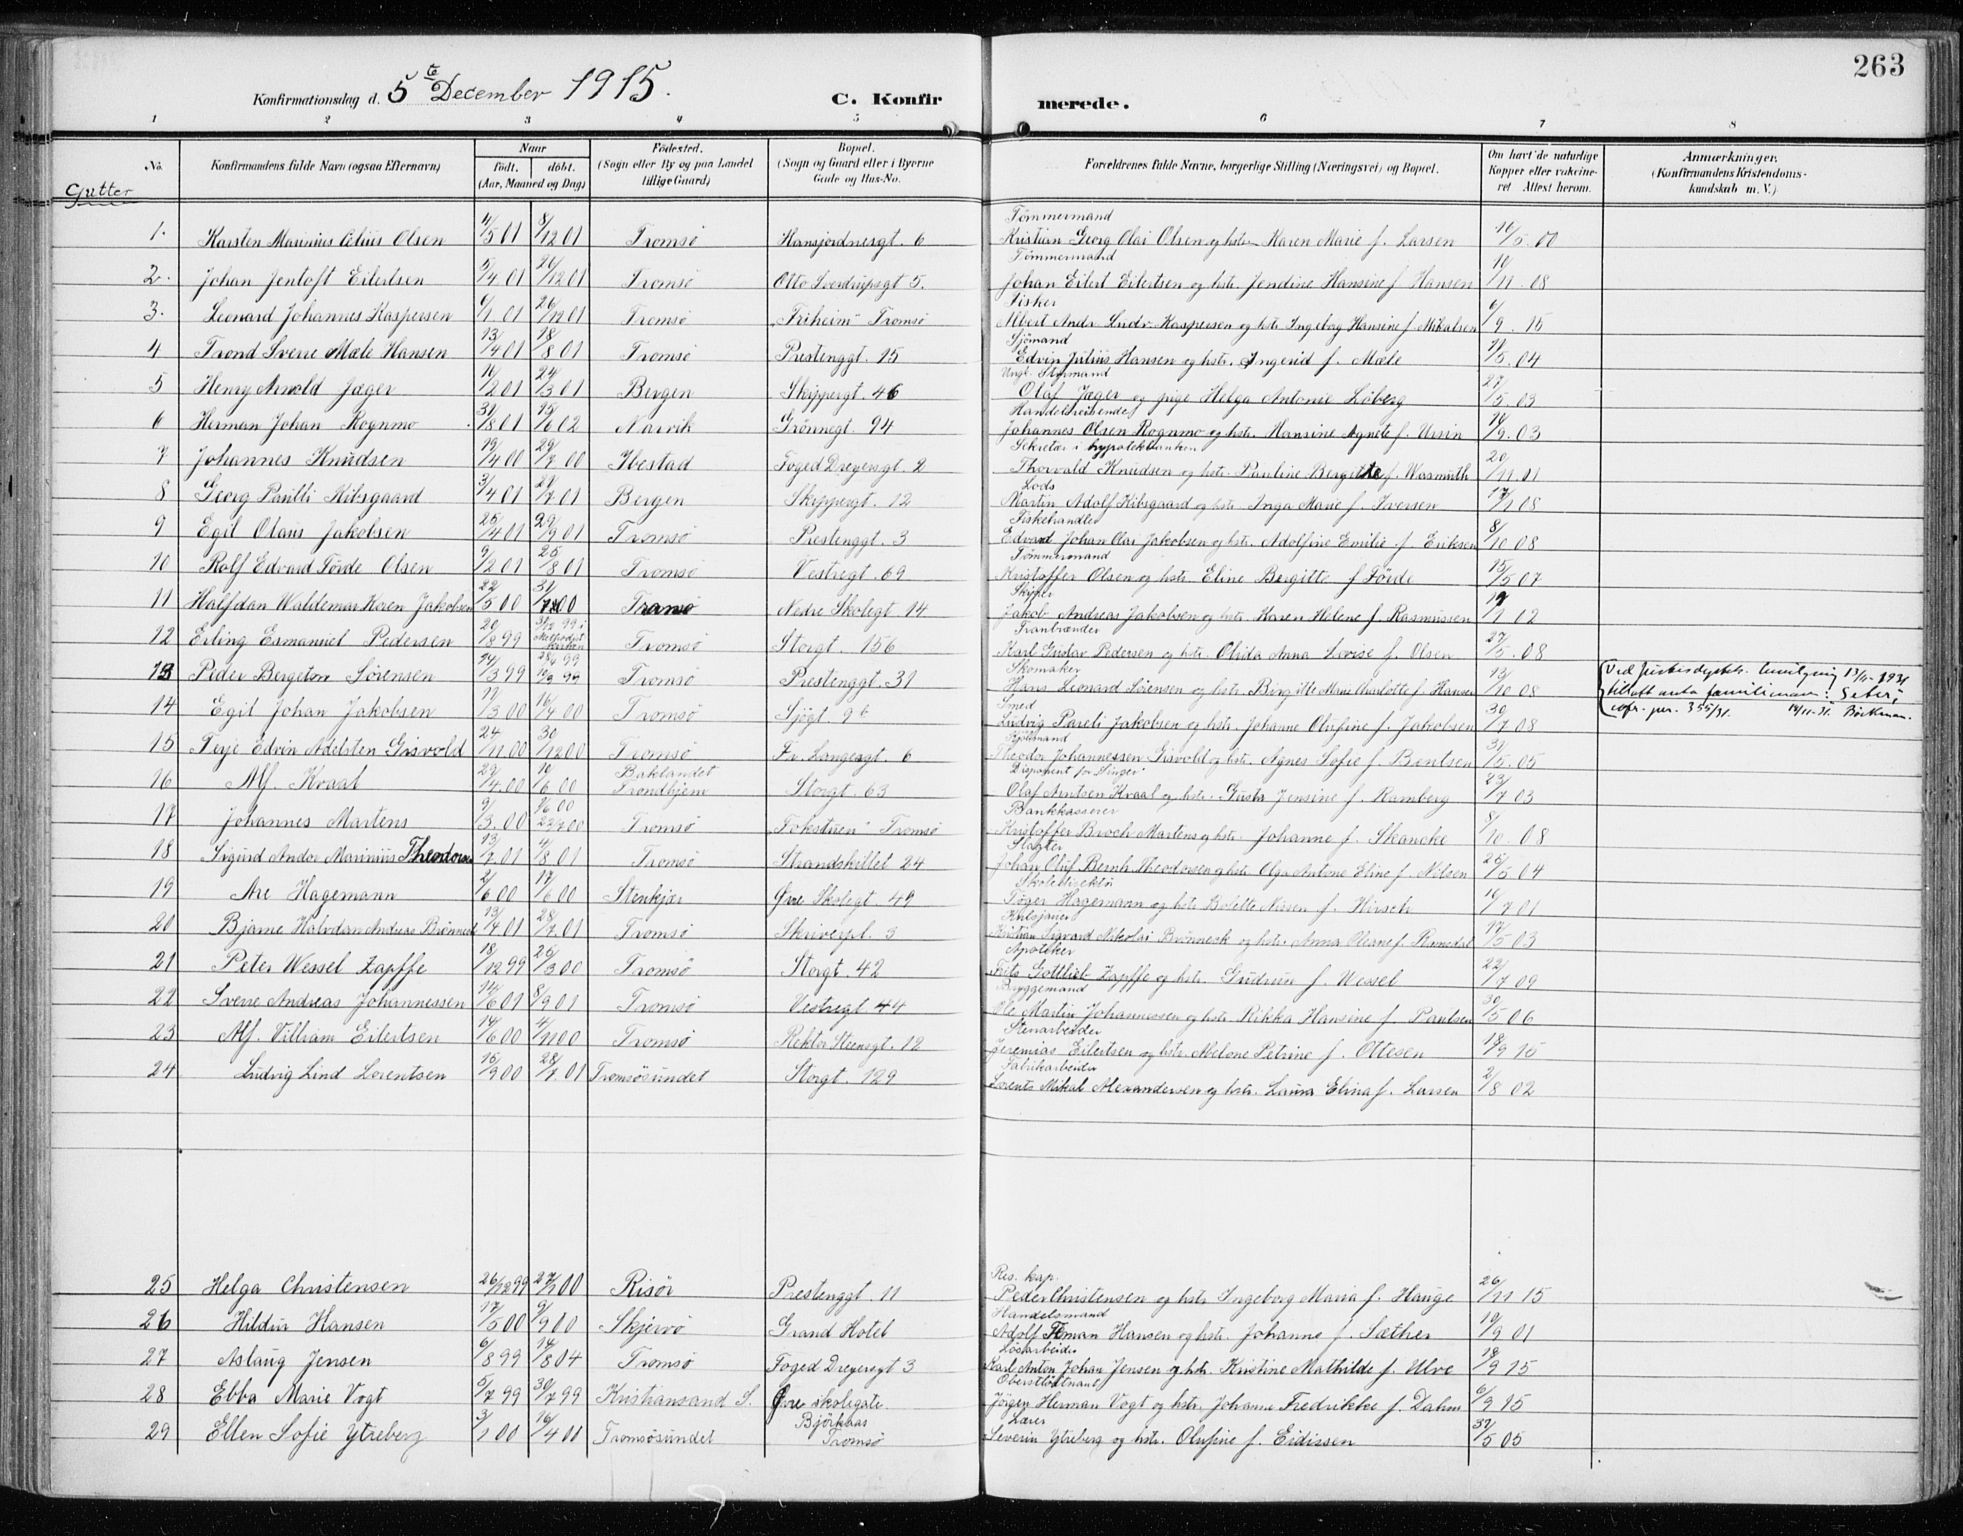 263
Konfirmationsdag d. 5te December 1915.
C. Konfirmerede.
1 2 3 4 5 6 7 8
No. Konfirmandens fulde Navn (ogsaa Efternavn) Naar født. døbt. (Aar, Maaned og Dag) Fødested. (Sogn eller By og paa Landet tillige Gaard) Bopæl. (Sogn og Gaard eller i Byerne Gade og Hus-No. Forældrenes fulde Navne, borgerlige Stilling (Næringsvei) og Bopæl. Om havt de naturlige Kopper eller vakcineret Attest herom. Anmærkninger. (Konfirmandens Kristendomskundskab m. V.)
Gutter
Tømmermand
1. Karsten Marinius Olsen 4/5 01 8/12 01 Tromsø Hansjordnesgt. 6 Kristian Georg Olai Olsen og hstr. Karen Marie f. Larsen 16/5. 00
Tømmermand
2. Johan Jentoft Eilertsen 5/4 01 26/12 01 Tromsø Otto Sverdrupsgt 5. Johan Eilert Eilertsen og hstr. Jendine Hansine f Hansen 10/11. 08
Fisker
3. Leonard Johannes Kaspersen 6/1 01 26/12 01 Tromsø "Friheim" Tromsø Albert Andr. Ludv. Kaspersen og hstr. Ingebrg Hansine f. Mikalsen 6/9. 15
Sjömand
4 Trond Sverre Mæle Hansen 13/4 01 18/8 01 Tromsø Prestenggt. 15 Edvin Julius Hansen og hstr. Ingerid f. Mæle 11/5. 04
Ungk. Styrmand
5 Henry Arnold Jæger 16/2 01 24/3 01 Bergen Skippergt. 46 Olaf Jæger og pige Helga Antonie Löberg 27/5. 03
Handelsreisende
6 Herman Johan Rognmo 31/8 01 15/6 02 Narvik Grönnegt. 94 Johannes Olsen Rognmo og hstr. Hansine Agnete f. Ursin 16/9. 03
Sekretær i hypotekbanken
7 Johannes Knudsen 19/4 00 29/7 00 Ibestad Foged Dreyersgt. 2 Thorvald Knudsen og hstr. Pauline Bergitte f. Wasmuth 20/11. 01
Lods
8 Georg Paulli Kibsgaard 3/4 01 21/7 01 Bergen Skippergt. 12 Martin Adolf Kibsgaard og hstr. Inga Marie f. Iversen 17/1 08
Fiskehandler
9 Egil Olaus Jakobsen 25/4 01 29/9 01 Tromsø Prestenggt. 3 Edvard Johan Olai Jakobsen og hstr. Adolfine Emilie f. Eriksen 8/10 08
Tømmermand
10 Rolf Edvard Förde Olsen 9/2 01 25/8 01 Tromsø Vestregt. 69 Kristoffer Olsen og hstr. Eline Bergitte f Förde 15/5 07
Skipper
11 Halfdan Waldemar Koren Jakobsen 22/5 00 31/12 00 Tromsø Nedre Skolegt 14 Jakob Andreas Jakobsen og hstr. Karen Helene f. Rasmussen 02
Tranbrænder
12 Erling Esmanuel Pedersen 20/8 99 31/12 99 i Methodist kirken Tromsø Storgt. 156 Karl Gustav Pedersen og hstr. Olrida Anna Lovise f. Olsen 27/5. 08
Skomaker
13 Peder Bergeton Sörensen 24/3 99 Tromsø Prestenggt. 31 Hans Leonard Sörensen og hstr. Birgitte Marie Charlotte f. Hansen 13/10 08 Ved justisdepts. bevilgning 13/11-1931
tillatt anta familienavn: Seber,
cfr. jnr. 355/31. 14/11-31. Böckman.
Smed
14 Egil Johan Jakobsen 17/3 00 16/4 00 Tromsø Sjögt. 96 Ludvig Pareli Jakobsen og hstr. Johanne Olufine f. Jakobsen 30/7 08
15 Terje Edvin Adelsten Gisvold 24/11 00 30/12 00 Tromsø Fr. Langesgt. 6 Theodor Johannessen Gisvold og hstr. Agnes Sofie f. Bentsen 31/5. 05
Disponent for "Singer"
16 Alf. Kraal 29/4. 00 10/6 00 Baklandet Trondhjem Storgt. 63 Olaf Arntsen Kraal og hstr. Gusta Jensine f. Ramberg 23/7 03
Bankkasserer
17 Johannes Martens 9/3. 00 Tromsø "Fokstuen" Tromsø Kristoffer Broch Martens og hstr. Johanne f. Skancke 8/10. 08
Slagter
18 Sigurd Andor Marinius Theodorsen 13/7 01 4/8 01 Tromsø Strandskillet 24 Johan Oluf Bernh. Theodorsen og hstr. Olga Antine Eline f. Nilsen 26/5 04
Skoledirektör
19 Are Hagemann 2/6 00 17/6 00 Stenkjær Övre Skolegt 49 Töger Hagemann og hstr. Bolette Nissen f. Hirsch 16/7 01
20 Bjarne Halvdan Andreas Brönneck 13/4 01 28/7 01 Tromsø Skriverpl. 3 Kristian Sigvard Nikolai Brönneck og hstr. Anna Oleane f. Ramedal 17/5 03
Apoteker
21 Peter Wessel Zapffe 18/12 99 26/3 00 Tromsø Storgt. 42 Frits Gottlieb Zapffe og hstr. Gudrun f. Wessel 22/7 09
Bryggemand
22 Sverre Andreas Johannessen 14/6 01 8/9 01 Tromsø Vestregt 44 Ole Martin Johannessen og hstr. Rikka Hansine f. Paulsen 30/5 06
Stenarbeider
23 Alf. Villiam Eilertsen 14/6 00 4/11 00 Tromsø Rektor Steensgt. 12 Jeremias Eilertsen og hstr. Melone Petrine f. Ottesen 18/9 15
Fabrikarbeider
24 Ludvig Lind Lorentsen 15/9 00 28/7 01 Tromsøsundet Storgt. 129 Lorents Mikal Alexandersen og hstr. Laura Elina f. Larsen 2/8 02
Res. kap.
25 Helga Christensen 26/12 99 27/1 00 Risør Prestenggt. 11 Peder Christensen og hstr Ingeborg Maria f. Hauge 26/11 15
Handelsmand
26 Hildur Hansen 17/5 00 9/9 00 Skjervø Grand Hotel Adolf Hansen og hstr. Johanne f. Sæther 19/9 01
Løsarbeider
27 Aslaug Jensen 6/8 99 14/8 04 Tromsø Foged Dreyersgt 3 Karl Anton Johan Jensen og hstr. Kristine Mathilde f. Ulve 18/9 15
Oberstløitnant
28 Ebba Marie Vogt 5/7 99 30/7 99 Kristiansand S. Övre skolegate Jörgen Herman Vogt og hstr. Johanne Fredrikke f. Dahm 6/9 15
Lærer
29 Ellen Sofie Ytreberg 3/1 00 16/4 00 Tromsøsundet Björkaas Tromsø Severin Ytreberg og hstr. Olufine f. Eidissen 31/5 05